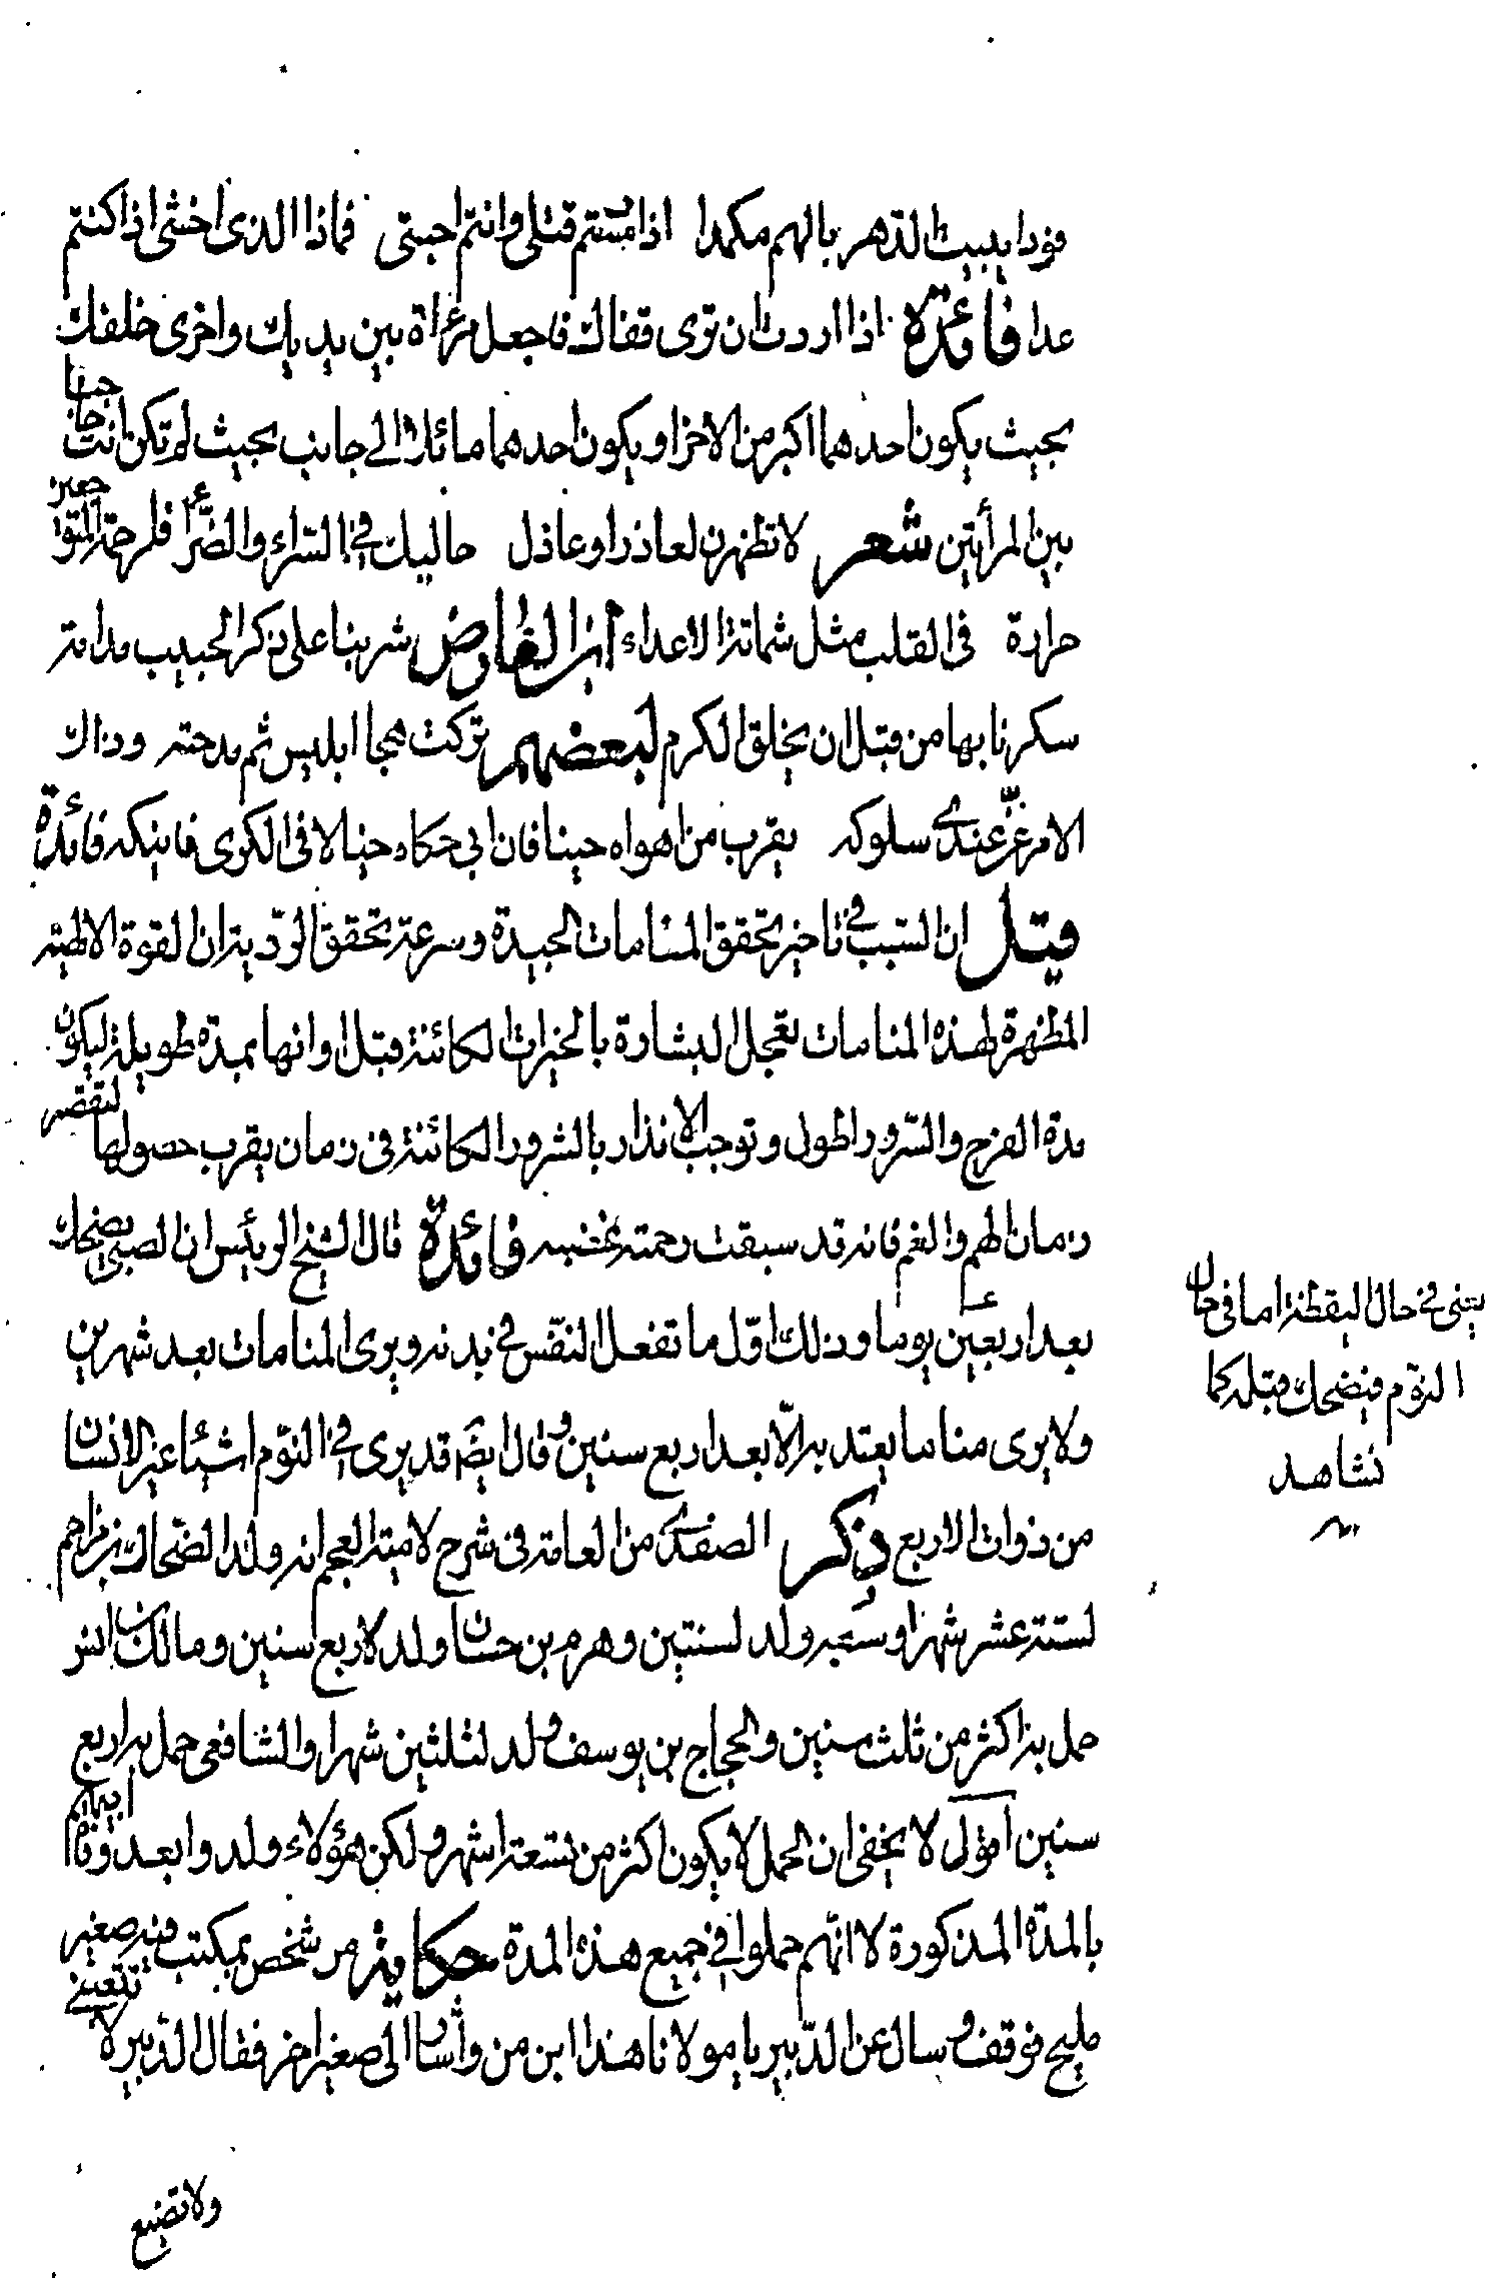 فردا يبيت الدهر بالهم مكمدا اذا شئتم قتلى وانتم احبتى فماذا الذى اخشى اذا كنتم
عدا فائدة اذا اردت ان ترى قفاك فاجعل مرءاة بين يديك واخرى خلفك
بحيث يكون احدهما اكبر من الاخرا ويكون احدهما مائلا الى جانب بحيث لم تكن انت حائلا
بين المرأتين شعر لا تظهرن لعاذرا وعاذل حاليك فى السراء والضراء فلرحمة المتوجعين
حرارة فى القلب مثل شماتة الاعداء ابن الفارض شربنا على ذكر الحبيب مدامة
سكرنا بها من قبل ان يخلق الكرم لبعضهم تركت هجا ابليس ثم مدحته وذاك
الامر عز عندى سلوكه يقرب من اهواه حينا فان ابى حكاه خيالا فى الكرى فانيكه فائدة
قيل ان السبب فى تاخير تحقق المنامات الجيدة وسرعة تحقق الردية ان القوة الالهية
المظهرة لهذه المنامات تعجل البشارة بالخيرات الكائنة قبل اوانها بمدة طويلة ليكون
مدة الفرح والسرور اطول وتوجب الانذار بالشرور الكائنة فى زمان يقرب حصولها لتقصر
زمان الهم والغم فانه قد سبقت رحمته غضبه فائدة قال الشيخ الرئيس ان الصبى يضحك
بعد اربعين يوما وذلك اول ما تفعل النفس فى بدنه ويرى المنامات بعد شهرين
ولا يرى مناما يعتد به الا بعد اربع سنين وقال ايضه قد يرى فى النوم اشيئا غير الانسان
من ذوات الاربع ذكر الصفدى من العامة فى شرح لامية العجم انه ولد الضحاك بن مزاحم
لستة عشر شهرا وسعبه ولد لسنتين وهرم بن حسان ولد لاربع سنين ومالك بن انس
حمل به اكثر من ثلث سنين والحجاج بن يوسف ولد لثلثين شهرا والشافعى حمل به اربع
سنين اقول لا يخفى ان الحمل لا يكون اكثر من تسعة اشهر ولكن هؤلاء ولدوا بعد وفاة ابيهم
بالمدة المذكورة لا انهم حملوا فى جميع هذه المدة حكاية مر شخص بمكتب فيه صغير
مليح فوقف وسال عن الدبير يا مولانا هذا ابن من واشار الى صغير اخر فقال الدبير لا تتعبنى
يعنى فى حال اليقظة اما فى حال
النوم فيضحك قبله كما
نشاهد
ولا تضيع